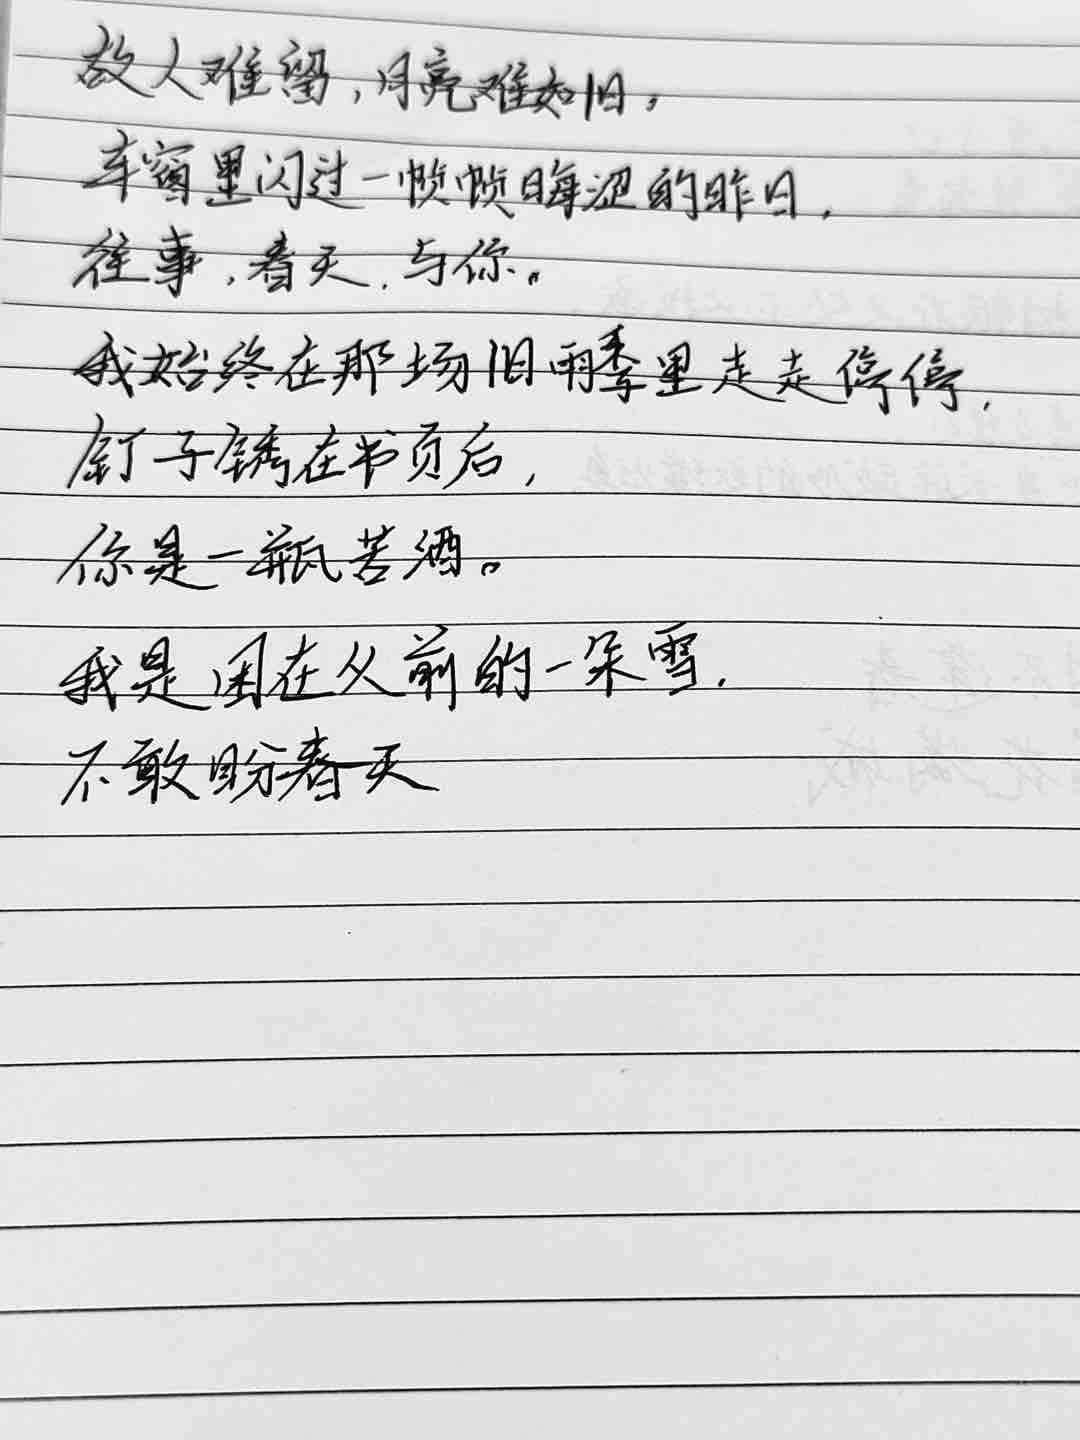 故人难留,月亮难如旧。
车窗里闪过一帧帧晦涩的昨日,
往事,春天,与你。
我始终在那场旧雨季里走走停停,
钉子锈在书页后,
你是一瓶苦酒。
我是困在从前的一朵雪,
不敢盼春天